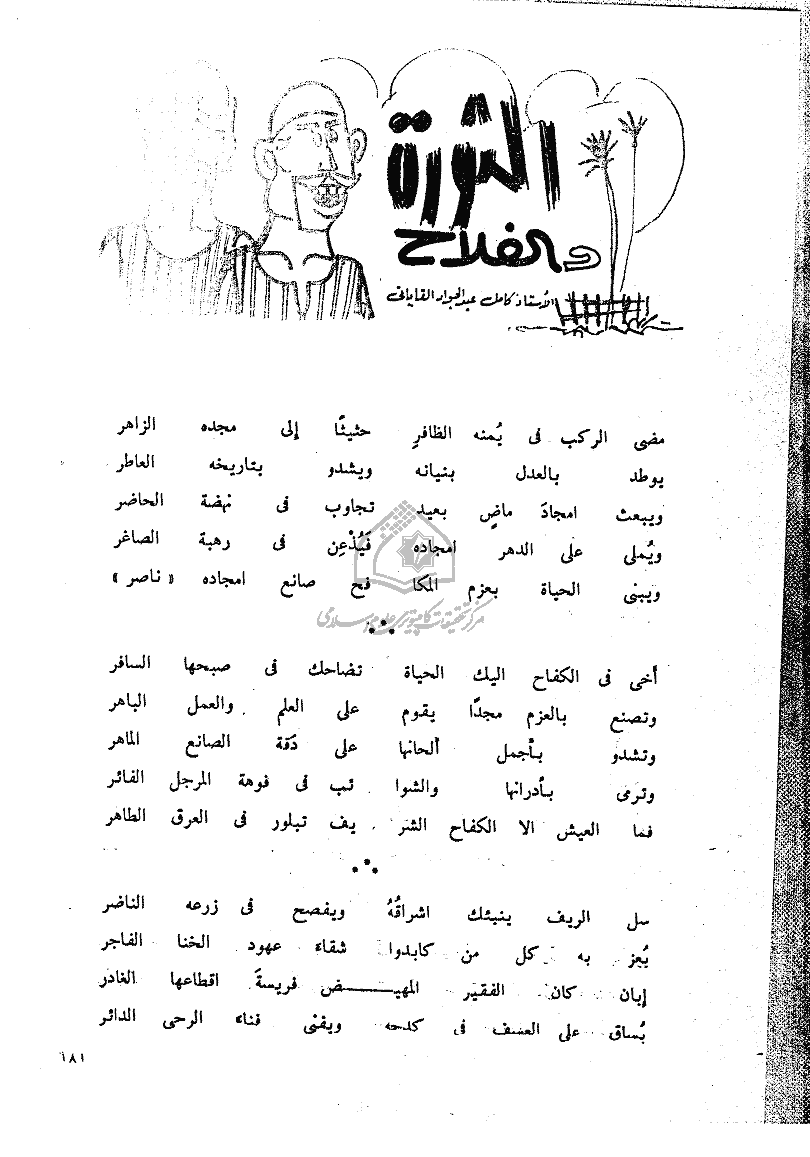 الثورة
والفلاح
الأستاذ كامل عبد الجواد القاياتى
مضى الركب فى يُمنه الظافرِ حثيثًا إلى مجده الزاهر
يوطد بالعدل بنيانه ويشدو بتاريخه العاطر
ويبعث امجادَ ماضٍ بعيد تجاوب فى نهضة الحاضر
ويُملى على الدهر امجاده فَيُذْعِن فى رهبة الصاغر
ويبنى الحياة بعزم المكا فح صانع امجاده « ناصر »
مركز تحقیقات کامپیوتری علوم اسلامی
أخى فى الكفاح اليك الحياة تضاحك فى صبحها السافر
وتصنع بالعزم مجدًا يقوم على العلم والعمل الباهر
وتشدو بأجمل ألحانها على دَقة الصانع الماهر
وترمى بأدرانها والشوا ئب فى فوهة المرجل الفائر
فما العيش الا الكفاح الشر يف تبلور فى العرق الطاهر
سل الريف ينبئك اشراقُهُ ويفصح فى زرعه الناضر
يُعز به كل من كابدوا شقاء عهود الخنا الفاجر
إبان كان الفقير المهيـــــض فريسةَ اقطاعها الغادر
يُساق على العسف فى كدحه ويفنى فناء الرحى الدائر
٦٨١